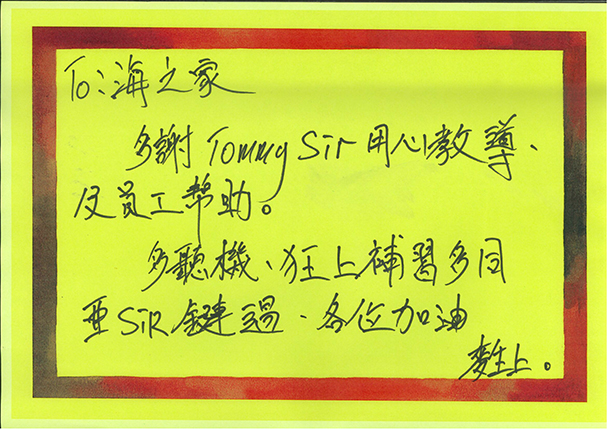 To：海之家
多謝 Tommy Sir 用心教導、
及員工幫助。
多聽機、狂上補習多同
亞 SIR 鍵過、各位加油
麥生上。